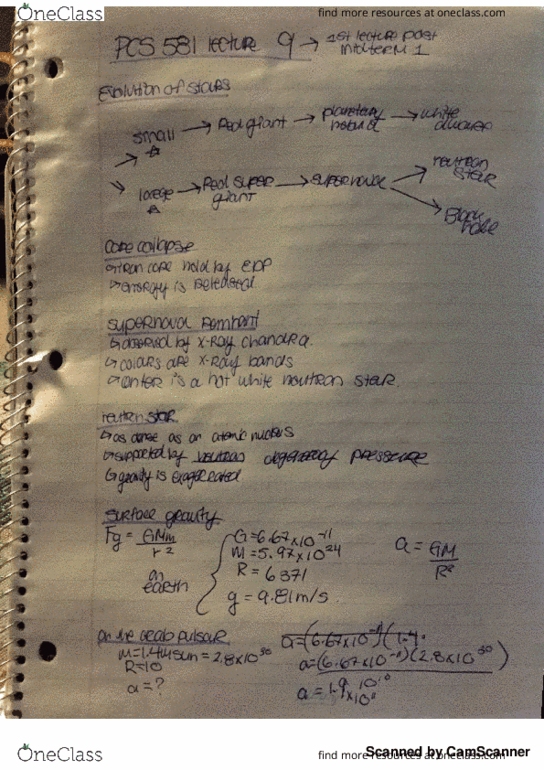 OneClass
find more resources at oneclass.com
PCS 581 lecture 9 → 1st lecture post midterm 1
Evolution of stars
small → Red giant → planetary → white
large → Red super giant → supernova → neutron star
Black hole
core collapse
↳ iron core held by EDP
↳ energy is released
supernova
↳ observed by X-Ray chandra.
↳ colours are X-Ray bands
↳ center is a hot white neutron star.
↳ as dense as an atomic nucleus
↳ supported by neutron degeneracy pressure
↳ gravity is
surface gravity
Fg = GMm / r²
on earth
G = 6.67x10⁻¹¹
M = 5.97x10²⁴
R = 6371
g = 9.81m/s.
a = GM / R²
on the crab pulsar
M = 1.44sun = 2.8x10³⁰
R = 10
a = ?
a = (6.67x10⁻¹¹)(1.4
a = (6.67x10⁻¹¹)(2.8x10³⁰)
a = 1.9
OneClass
find more resources at oneclass.com
Scanned by CamScanner